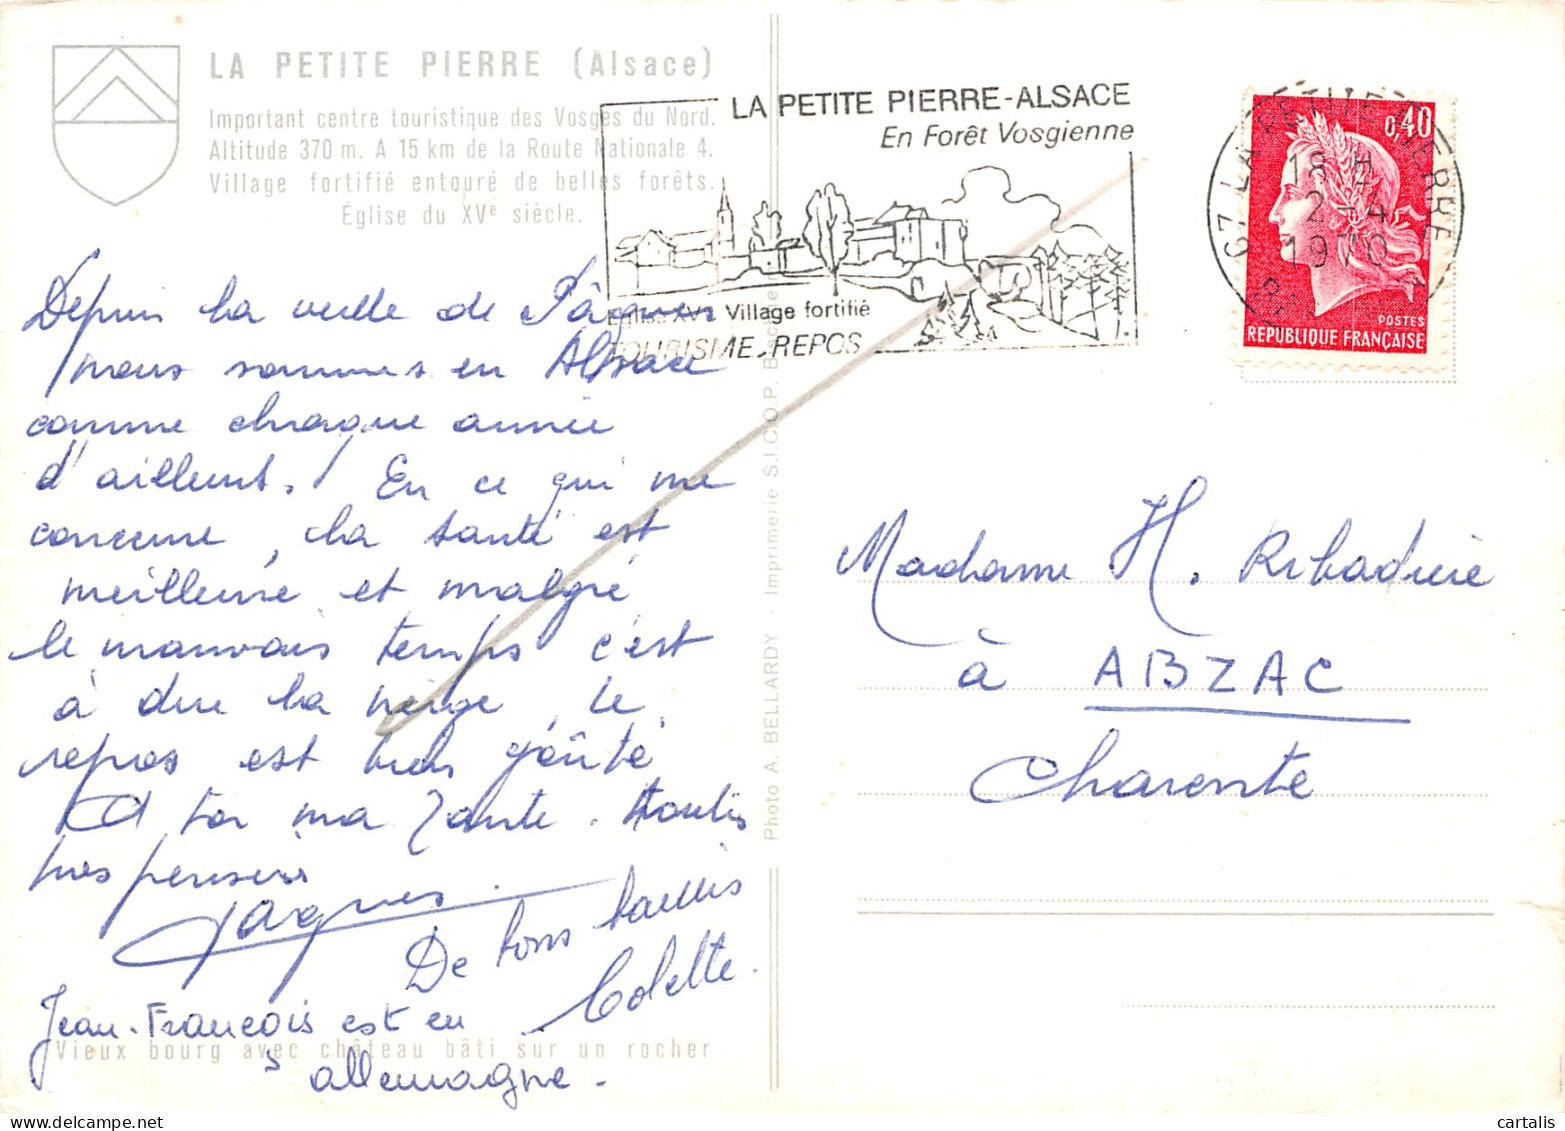 LA PETITE PIERRE (Alsace)
Important centre touristique des Vosges du Nord.
Altitude 370 m. A 15 km de la Route Nationale 4.
Village fortifié entouré de belles forêts.
Église du XVe siècle.
LA PETITE PIERRE-ALSACE
En Forêt Vosgienne
Eglise XVe Village fortifié
TOURISME_REPOS
67 LA PETITE PIERRE
18 H
2-4
1970
0,40
POSTES
REPUBLIQUE FRANÇAISE
Depuis la veille de Pâques
nous sommes en Alsace
comme chaque année
d'ailleurs. En ce qui me
concerne, la santé est
meilleure et malgré
le mauvais temps c'est
à dire la neige, le
repos est bien goûté.
Et toi ma Tante. Toutes
mes pensées
Jacques
De bons baisers
Colette.
Jean-François est en
allemagne.
Vieux bourg avec château bâti sur un rocher
Photo A. BELLARDY - Imprimerie S.I.C.O.P.
Madame H. Ribadière
à ABZAC
Charente
cartalis
www.delcampe.net